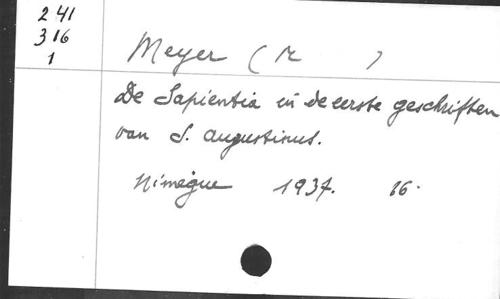 241
316
1
Meyer ( )
De Sapientia in de eerste geschriften
van S. Augustinus.
Nimègue 1937. 16.